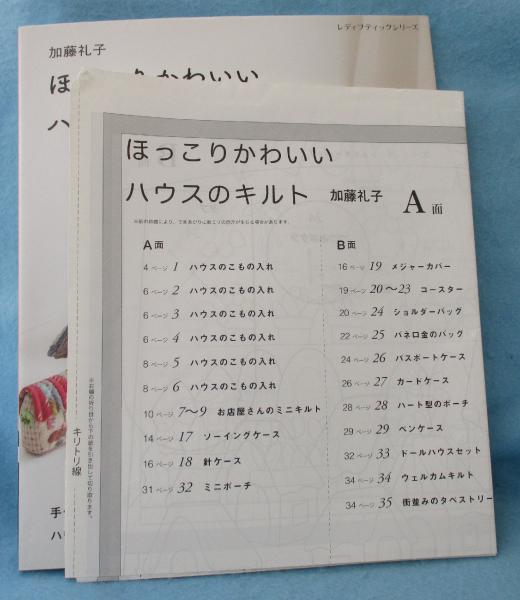 レディブティックシリーズ
加藤礼子
ほっこりかわいい
ハ
ほっこりかわいい
ハウスのキルト 加藤礼子 A面
A面
4ページ 1 ハウスのこもの入れ
6ページ 2 ハウスのこもの入れ
6ページ 3 ハウスのこもの入れ
6ページ 4 ハウスのこもの入れ
8ページ 5 ハウスのこもの入れ
8ページ 6 ハウスのこもの入れ
10ページ 7〜9 お店屋さんのミニキルト
14ページ 17 ソーイングケース
16ページ 18 針ケース
31ページ 32 ミニポーチ
B面
16ページ 19 メジャーカバー
19ページ 20〜23 コースター
20ページ 24 ショルダーバッグ
22ページ 25 バネ口金のバッグ
24ページ 26 パスポートケース
26ページ 27 カードケース
28ページ 28 ハート型のポーチ
29ページ 29 ペンケース
32ページ 33 ドールハウスセット
34ページ 34 ウェルカムキルト
34ページ 35 街並みのタペストリー
キリトリ線
※右端の折り目から下の紙を引き出して切り取ります。
手
ハ